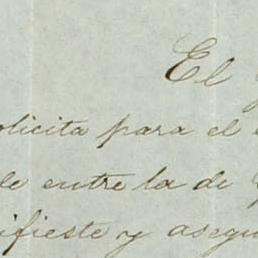 El
olicita para el
de entre la de
ifieste y asegu